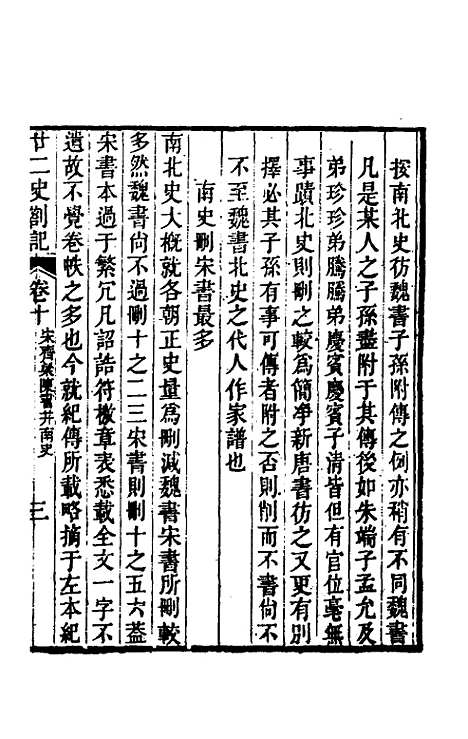 按南北史仿魏書子孫附傳之例亦稍有不同魏書
凡是某人之子孫盡附于其傳後如朱端子孟允及
弟珍珍弟騰騰弟慶賓慶賓子清皆但有官位毫無
事蹟北史則刪之較爲簡淨新唐書仿之又更有別
擇必其子孫有事可傳者附之否則削而不書尙不
不至魏書北史之代人作家譜也
南史刪宋書最多
南北史大槪就各朝正史量爲刪減魏書宋書所刪較
多然魏書尙不過刪十之二三宋書則刪十之五六葢
宋書本過于繁冗凡詔誥符檄章表悉載全文一字不
遺故不覺卷帙之多也今就紀傳所載略摘于左本紀
廿二史劄記 卷十 宋齊梁陳書并南史 三